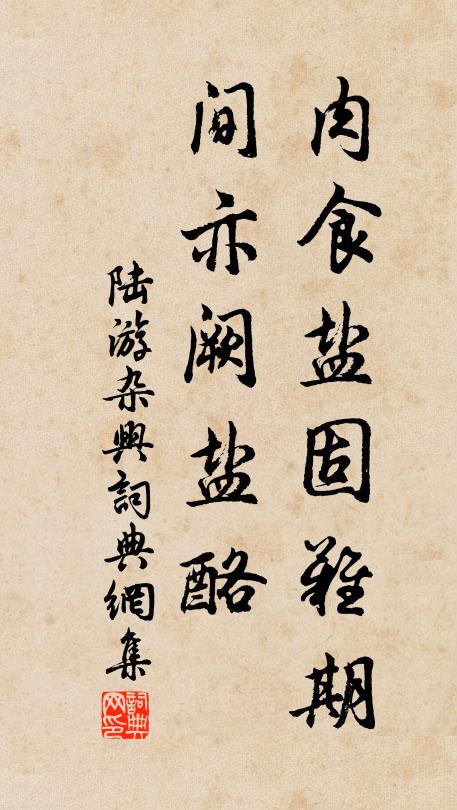 肉食盐固难期
间亦阙盐酪
陆游杂兴詞典網集
詞典网印